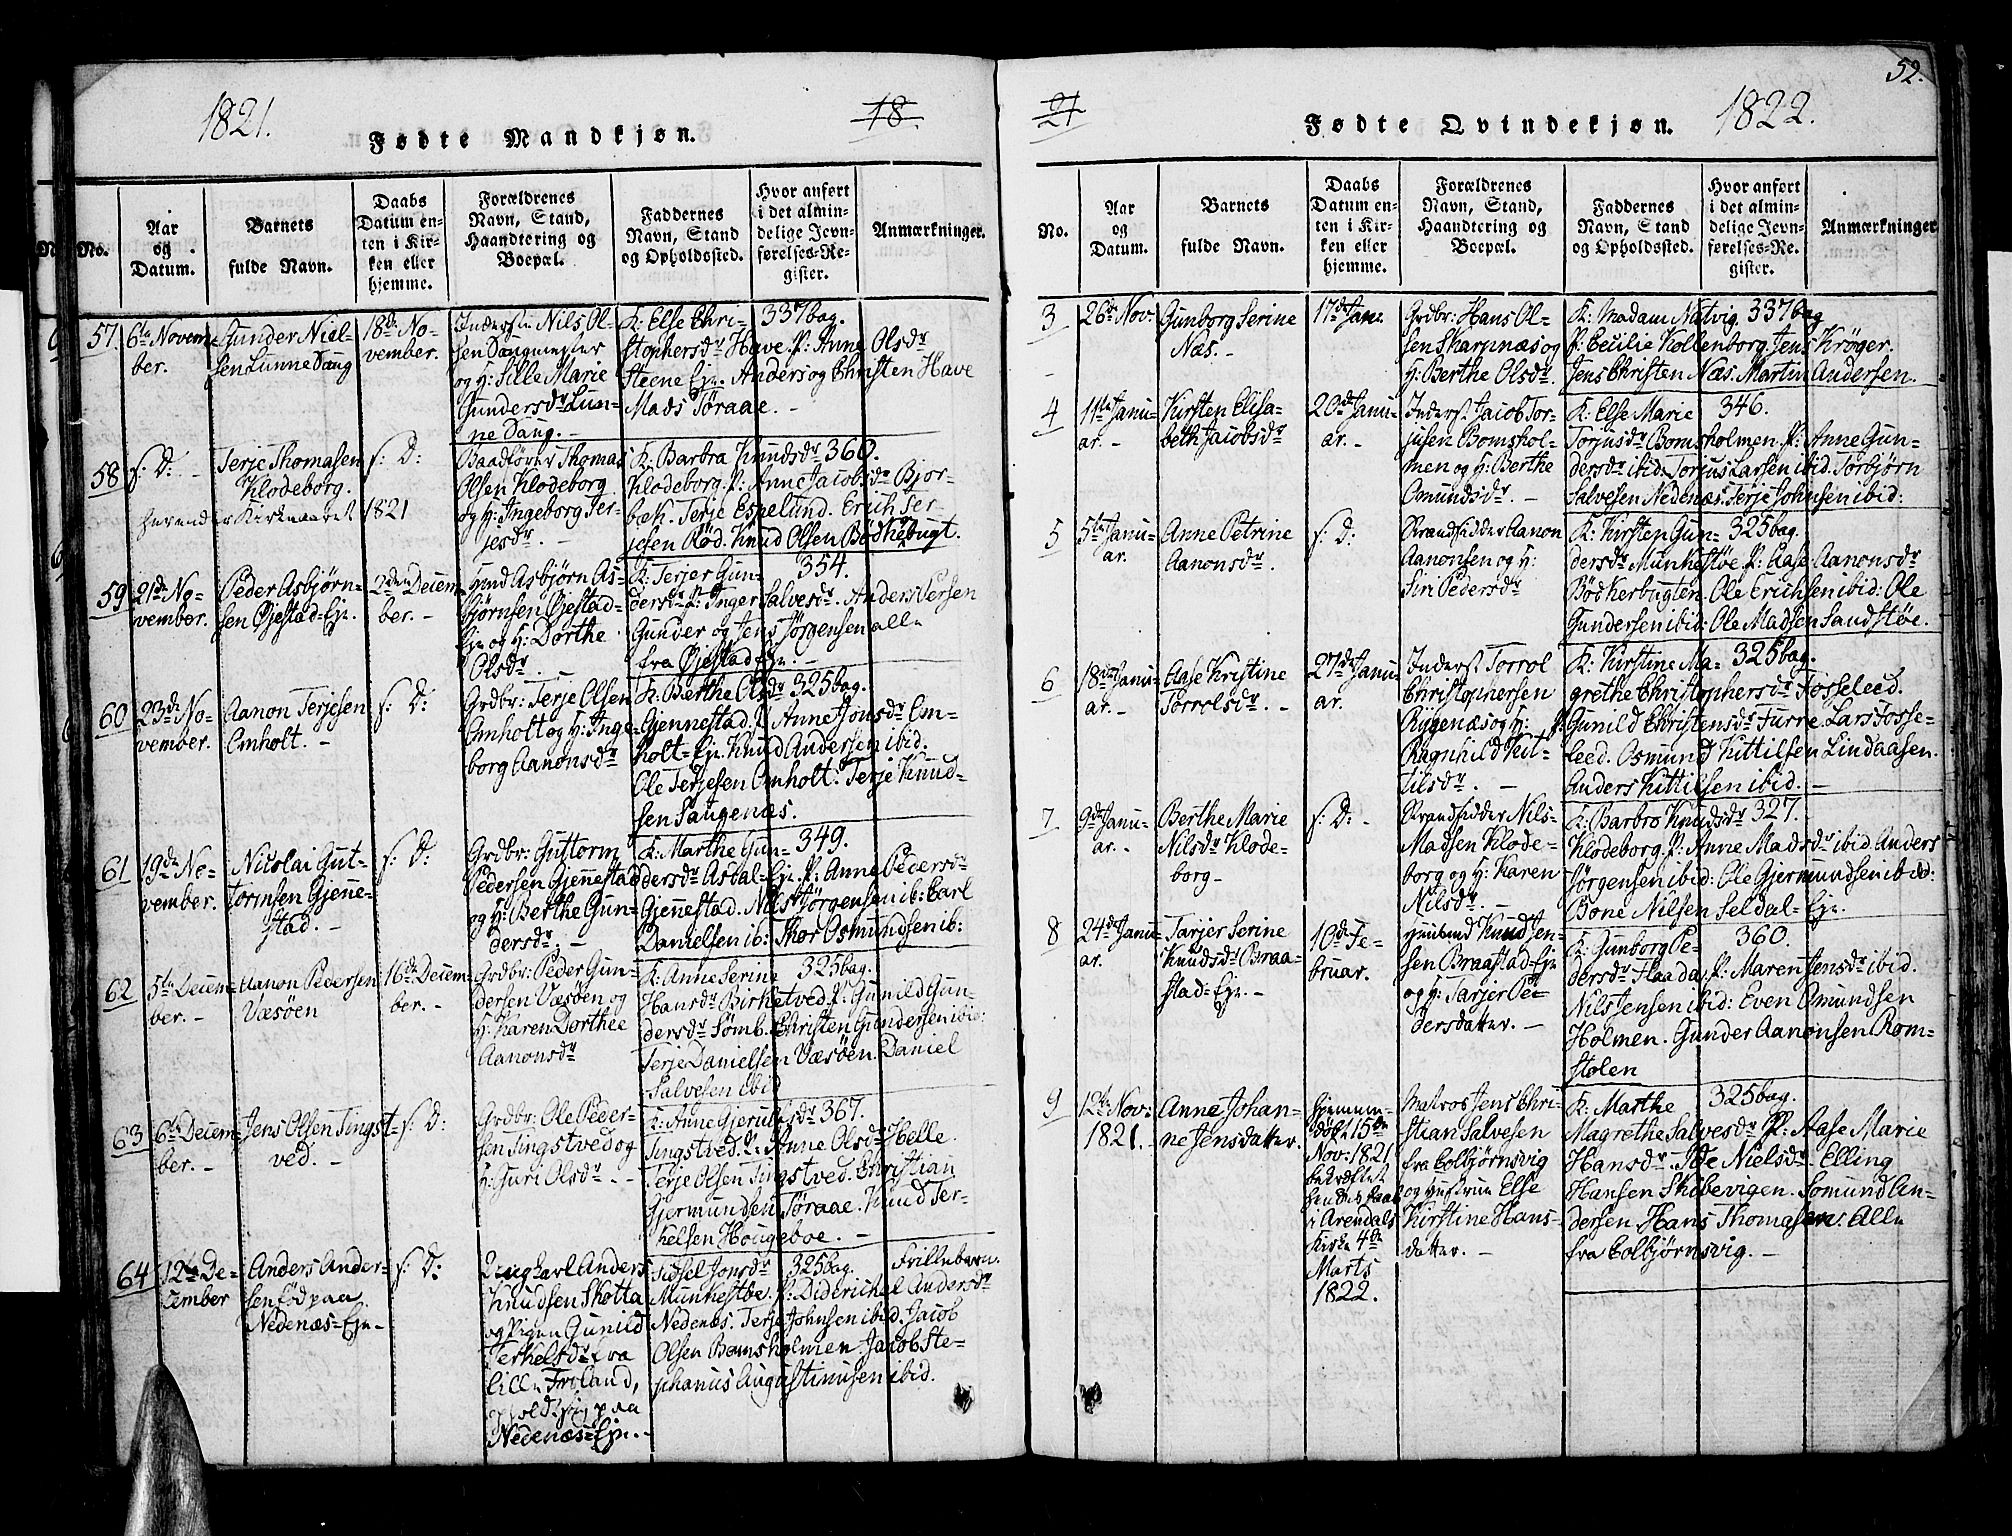 1821.
18
Fødte Mandkjøn.
No.
Aar
og
Datum.
Barnets
fulde Navn.
Daabs
Datum en-
ten i Kir-
ken eller
hjemme.
Forældrenes
Navn, Stand,
Haandtering og
Boepæl.
Faddernes
Navn, Stand
og Opholdssted.
Hvor anført
i det almin-
delige Jevn-
førelses-Re-
gister.
Anmærkninger.
57.
6te Novem-
ber.
Gunder Niel-
sen Lunne Saug
18de No-
vember.
Inderste Nils Ol-
sen Saugmester
og H: Sille Marie
Gundersdr Lun-
ne Saug. -
K: Else Chri- 337 bag.
stophersdr Have. P: Anne Olsdr
Steene Eje. Anders og Christen Have
Mads Tøraae. -
58
s: D: -
Terje Thomasen
Klodeborg.
s: D:
herender Kirkeaaret 1821
Baadfører Thomas
Olsen Klodeborg
og H: Ingeborg Ter-
jesdr. -
K: Barbra Knudsdr 360.
Klodeborg. P: Anne Jacobsdr Bjor-
bæk. Terje Espelund. Erich Ter-
jesen Rød. Knud Olsen Bødkerbugt.
59
21de No-
vember.
Peder Asbjørn-
sen Øjestad-Eje.
2den Decem-
ber. -
Huusmd Asbjørn As-
bjørnsen Øjestad-
Eje og H: Dorthe
Olsdr. -
K: Terjer Gun- 354.
dersdr P: Inger Salvesdr. Anders Persen
Gunder og Jens Jørgensen alle
fra Øjestad-Eje. -
60
23de No-
vember.
Aanon Terjesen
Omholt. -
s: D:
Grdbr: Terje Olsen
Omholt og H: Inge-
borg Aanonsdr
K: Berthe Olsdr 325 bag.
Gjennestad. P: Anne Jonsdr Om-
holt-Eje. Knud Andersen ibid.
Ole Terjesen Omholt. Terje Knud-
sen Saugenæs.
61
19de No-
vember.
Nicolai Gut-
tormsen Gjenne-
stad. -
s: D:
Grdbr: Guttorm
Pedersen Gjennestad
og H: Berthe Gun-
dersdr. -
K: Marthe Gun- 349.
dersdr Asdal-Eje. P: Anne Pedersdr
Gjennestad. Nils Jørgensen ib: Carl
Danielsen ib: Thor Osmundsen ib:
62
5te Decem-
ber. -
Aanon Pedersen
Væsöen
16de Decem-
ber. -
Grdbr: Peder Gun-
dersen Væsöen og
H: Karen Dorthee
Aanonsdr
K: Anne Serine 325 bag.
Hansdr Birketved. P: Gunild Gun-
dersdr Sømb. Christen Gundersen ibid:
Terje Danielsen Væsöen. Daniel
Salvesen ibid
63
6te Decem-
ber. -
Jens Olsen Tingst-
ved. -
s: D:
Grdbr: Ole Peder-
sen Tingstved og
H: Guri Olsdr. -
K: Anne Gjerulfsdr 367.
Tingstved. P: Anne Olsdr Helle.
Terje Olsen Tingstved. Christian
Gjermundsen Tøraae. Knud Ter-
kelsen Hougeboe. -
64
12te De-
cember
Anders Ander-
sen fød paa
Nedenæs-Eje. -
s: D:
Ungkarl Anders
Knudsen Skotta
og Pigen Gunild
Terkelsdr fra
Lille Froland,
opholdt sig paa
Nedenæs-Eje. -
Sidsel Jonsdr 325 bag. Frillebarn.
Munkestøe. P: Diderichel Andersdr
Nedenæs. Terje Johnsen ibid. Jacob
Olsen Bomsholmen. Jacob Ste-
phanus Augustinusen ibid.
52.
21
Fødte Qvindekjøn.
1822.
No.
Aar
og
Datum.
Barnets
fulde Navn.
Daabs
Datum en-
ten i Kir-
ken eller
hjemme.
Forældrenes
Navn, Stand,
Haandtering og
Boepæl.
Faddernes
Navn, Stand
og Opholdssted.
Hvor anført
i det almin-
delige Jevn-
førelses-Re-
gister.
Anmærkninger
3
26de Nov.
Gunborg Serine
Næs. -
17de Jan.
Grdbr: Hans Ol-
sen Skarpnæs og
H: Berthe Olsdr.
K: Madam Natvig. 337 bag
P: Cecilie Kollenborg. Jens Krøger.
Jens Christen Næs. Martin Andersen.
4
11te Janu-
ar. -
Kirsten Elisa-
beth Jacobsdr
20de Janu-
ar. -
Inderst. Jacob Tor-
jusen Bomshol-
men og H: Berthe
Osmundsdr. -
K: Else Marie 346.
Torjusdr Bomsholmen. P: Anne Gun-
dersdr ibid. Torjus Larsen ibid. Torbjørn
Salvesen Nedenæs. Terje Johnsen ibid:
5
5te Janu-
ar.
Anne Petrine
Aanonsdr.
s: D:
Strandsidder Aanon
Aanonsen og H:
Siri Pedersdr
K: Kirsten Gun- 325 bag.
dersdr Munkestøe. P: Aase Aanonsdr
Bødkerbugten. Ole Erichsen ibid: Ole
Gundersen ibid: Ole Madsen Sandstøe.
6
18de Janu-
ar. -
Aase Kristine
Torrolsdr. -
27de Janu-
ar.
Inderst Torrol
Christophersen
Rygenæs og H:
Ragnhild Kit-
tilsdr. -
K: Kirstine Ma- 325 bag.
grethe Christophersdr Fosseleed.
P: Gunild Christensdr Furre. Lars Fosse-
leed. Osmund Kittilsen Lindaasen.
Anders Kittilsen ibid. -
7
9de Janu-
ar. -
Berthe Marie
Nilsdr Klode-
borg -
s: D: -
Strandsidder Nils
Madsen Klode-
borg og H: Karen
Nilsdr. -
K: Barbro Knudsdr 327.
Klodeborg. P: Anne Madsdr ibid. Anders
Jörgensen ibid: Ole Gjermundsen ibid:
Bone Nilsen Seldal-Eje.
8
24de Janu-
ar.
Tarjer Serine
Knudsdr Braa-
stad-Eje. -
10de Fe-
bruar.
Huusmd Knud Jen-
sen Braastad-Eje
og H: Tarjer Pe-
dersdatter. -
K: Gunborg Pe- 360.
dersdr Flaada. P: Maren Jensdr ibid.
Nils Jensen ibid: Even Omundsen
Holmen. Gunder Aanonsen Rom-
stølen
9
12te Nov:
1821. -
Anne Johan-
ne Jensdatter.
hjemme-
døpt 15de
Nov: 1821
bekræftet
hendes Daab
i Arendals
Kirke 4de
Marts
1822.
Matros Jens Chri-
stian Salvesen
fra Colbjørnsvig
og Hustrue Else
Kirstine Hans-
datter. -
K: Marthe 325 bag.
Magrethe Salvesdr P: Aase Marie
Hansdr. Ide Nielsdr. Elling
Hansen Skibevigen. Somund An-
dersen. Hans Thomasen. Alle
fra Colbjørnsvig. -